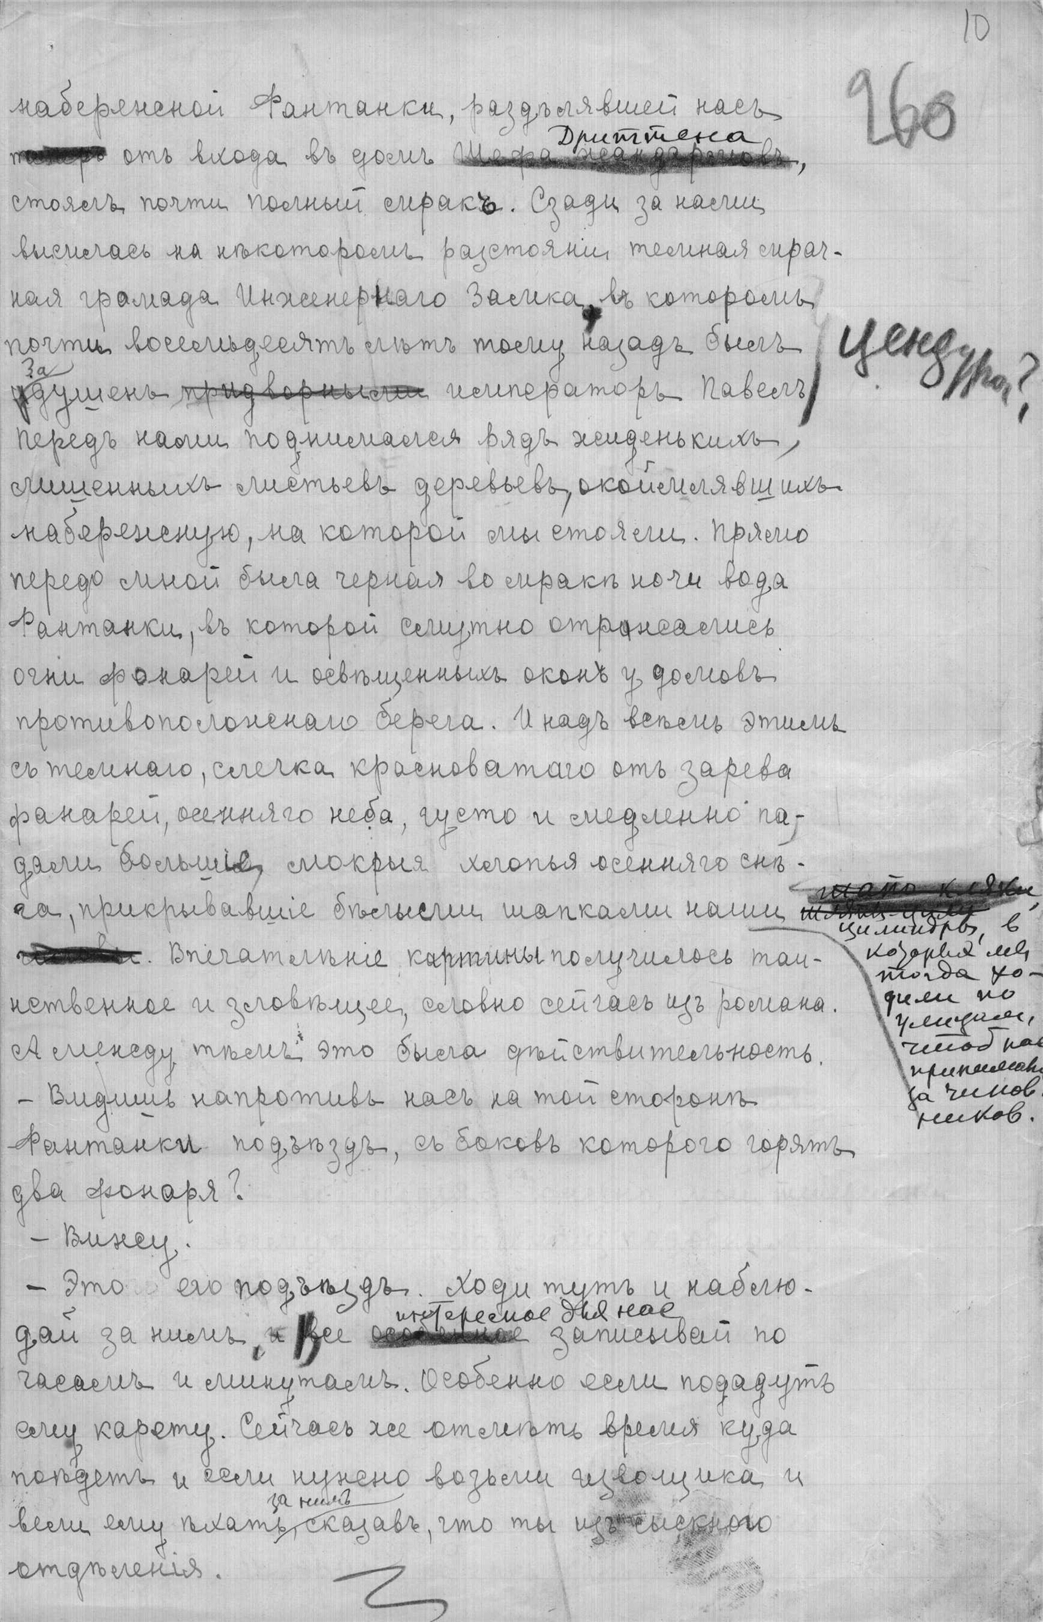 10
260
набережной Фантанки, раздѣлявшей насъ
Дриттена
теперь отъ входа въ домъ Шефа жандармовъ,
стоялъ почти полный мракъ. Сзади за нами
высилась на нѣкоторомъ разстояніи темная мрач-
ная громада Инженернаго Замка, въ которомъ
почти восемьдесятъ лѣтъ тому назадъ былъ
цензурно?
за
удушенъ придворными императоръ Павелъ
Передъ нами поднимался рядъ жиденькихъ,
лишенныхъ листьевъ деревьевъ, окоймлявшихъ
набережную, на которой мы стояли. Прямо
передо мной была черная во мракѣ ночи вода
Фантанки, въ которой смутно отражались
огни фонарей и освѣщенныхъ оконъ у домовъ
противоположнаго берега. И надъ всѣмъ этимъ
съ темнаго, слегка красноватаго отъ зарева
фанарей, осенняго неба, густо и медленно па-
дали большіе, мокрыя хлопья осенняго снѣ-
га, прикрывавшіе бѣлыми шапками наши
цилиндры, в
которых мы
тогда хо-
дили по
улицам,
чтоб нас
принимали
за чинов-
ников.
. Впечатлѣніе картины получилось таи-
нственное и зловѣщее, словно сейчасъ изъ романа.
А между тѣмъ это была дѣйствительность.
– Видишь напротивъ насъ на той сторонѣ
Фантанки подъѣздъ, съ боковъ которого горятъ
два фонаря?
– Вижу.
– Это его подъѣздъ. Ходи тутъ и наблю-
интересное для нас
дай за нимъ, и Все особенное записывай по
часамъ и минутамъ. Особенно если подадутъ
ему карету. Сейчасъ же отмѣть время куда
поѣдетъ и если нужно возьми извощика и
за нимъ
вели ему ѣхать, сказавъ, что ты изъ сыскного
отдѣленія.